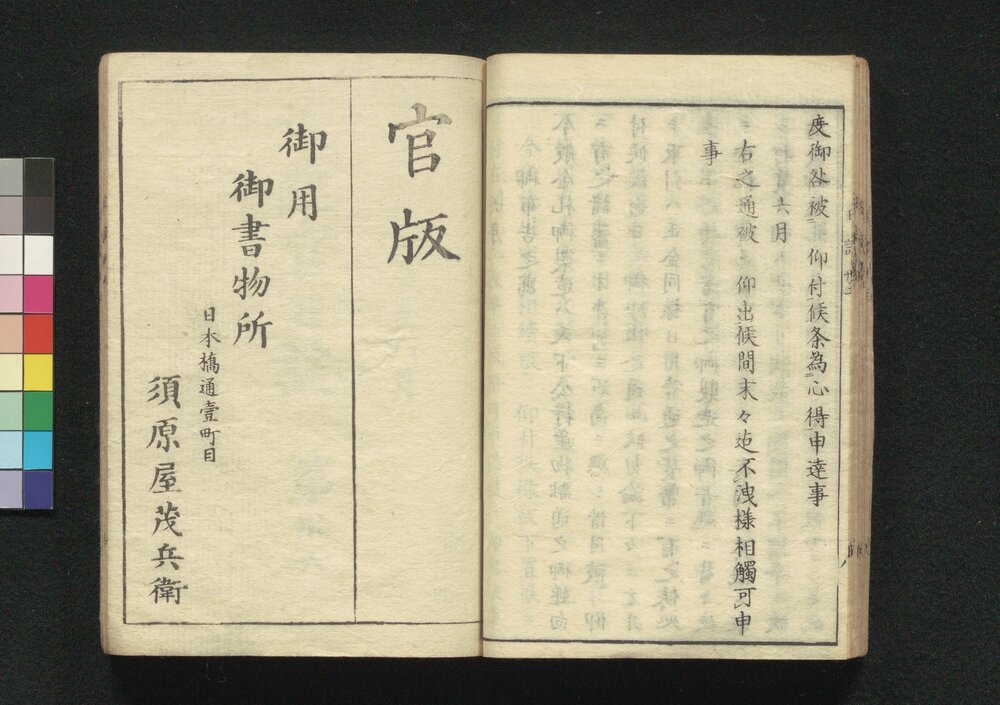 度御咎被 仰付候条為心得申達事
六月
右之通被 仰出候間末々迄不洩様相觸可申
事
官版
御用
御書物所
日本橋通壹町目
須原屋茂兵衛